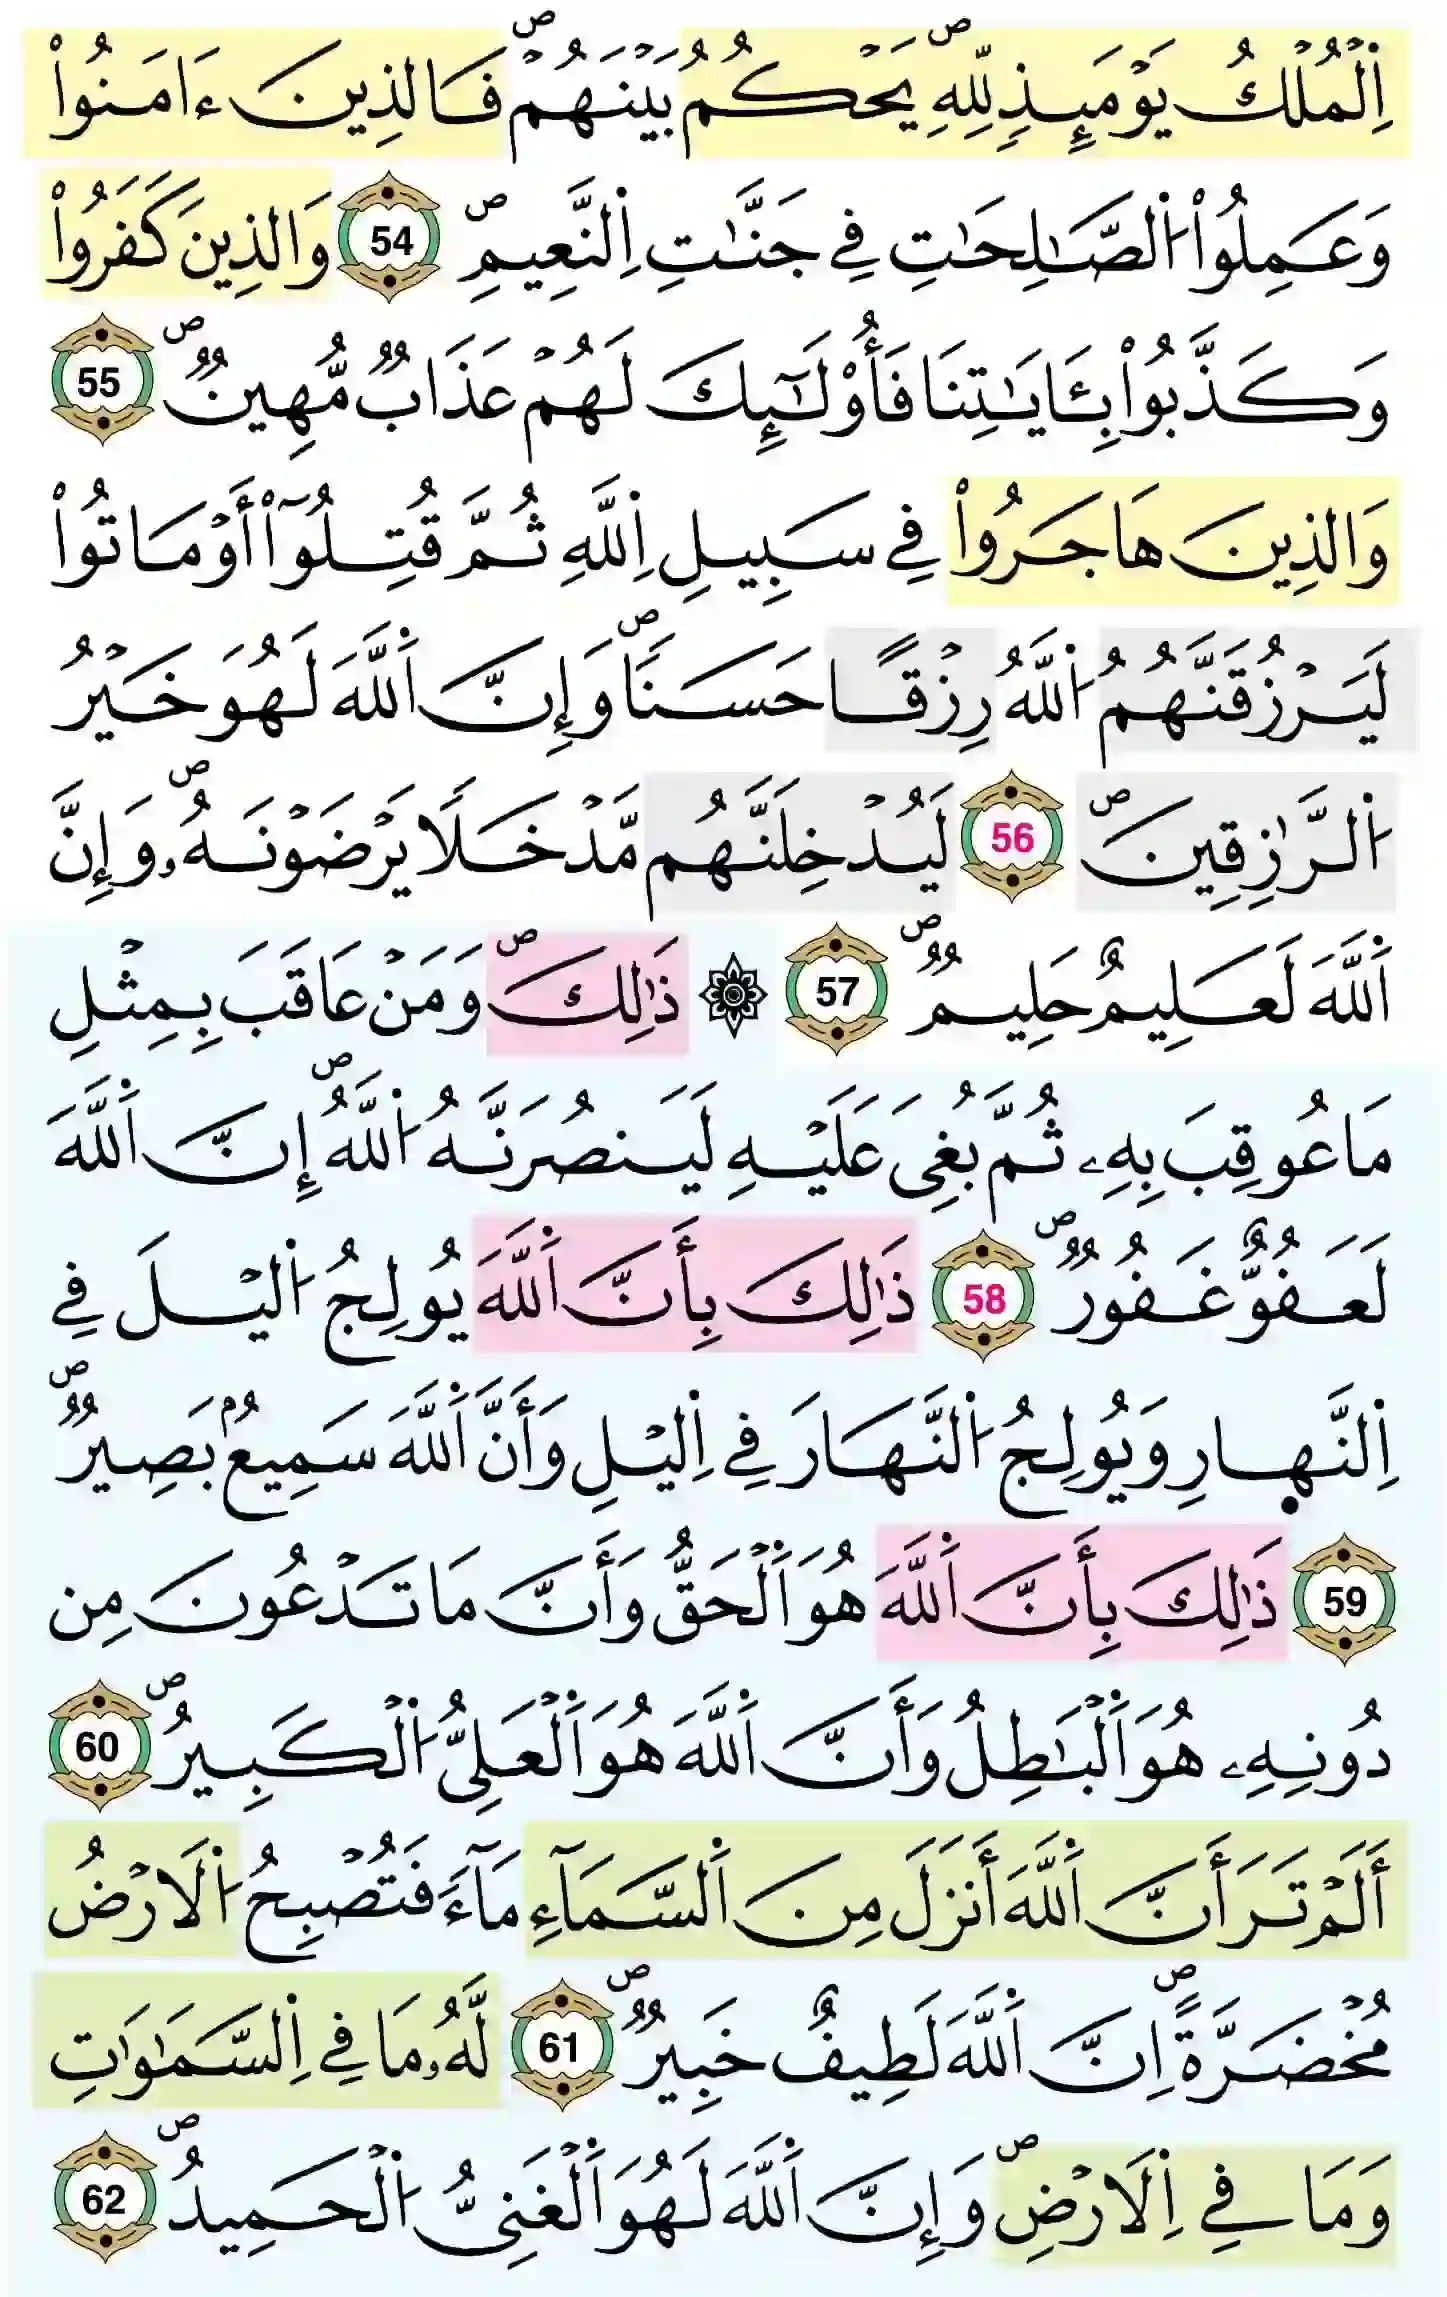 اِ۬لْمُلْكُ يَوْمَئِذٍ لِّلهِۖ يَحْكُمُ بَيْنَهُمْۖ فَالذِينَ ءَامَنُواْ
وَعَمِلُواْ اُ۬لصَّٰلِحَٰتِ فِے جَنَّٰتِ اِ۬لنَّعِيمِۖ 54 وَالذِينَ كَفَرُواْ
وَكَذَّبُواْ بِـَٔايَٰتِنَا فَأُوْلَٰٓئِكَ لَهُمْ عَذَابٌ مُّهِينٌۖ 55
وَالذِينَ هَاجَرُواْ فِے سَبِيلِ اِ۬للَّهِ ثُمَّ قُتِلُوٓاْ أَوْ مَاتُواْ
لَيَرْزُقَنَّهُمُ اُ۬للَّهُ رِزْقًا حَسَنٗاۖ وَإِنَّ اَ۬للَّهَ لَهُوَ خَيْرُ
اُ۬لرَّٰزِقِينَۖ 56 لَيُدْخِلَنَّهُم مَّدْخَلٗا يَرْضَوْنَهُۥۖ وَإِنَّ
اَ۬للَّهَ لَعَلِيمٌ حَلِيمٌۖ 57 ۞ ذَٰلِكَۖ وَمَنْ عَاقَبَ بِمِثْلِ
مَا عُوقِبَ بِهِۦ ثُمَّ بُغِيَ عَلَيْهِ لَيَنصُرَنَّهُ اُ۬للَّهُۖ إِنَّ اَ۬للَّهَ
لَعَفُوٌّ غَفُورٌۖ 58 ذَٰلِكَ بِأَنَّ اَ۬للَّهَ يُولِجُ اُ۬ليْلَ فِے
اِ۬لنَّه۪ارِ وَيُولِجُ اُ۬لنَّهَارَ فِے اِ۬ليْلِ وَأَنَّ اَ۬للَّهَ سَمِيعُۢ بَصِيرٌۖ
59 ذَٰلِكَ بِأَنَّ اَ۬للَّهَ هُوَ اَ۬لْحَقُّ وَأَنَّ مَا تَدْعُونَ مِن
دُونِهِۦ هُوَ اَ۬لْبَٰطِلُ وَأَنَّ اَ۬للَّهَ هُوَ اَ۬لْعَلِيُّ اُ۬لْكَبِيرُۖ 60
أَلَمْ تَرَ أَنَّ اَ۬للَّهَ أَنزَلَ مِنَ اَ۬لسَّمَآءِ مَآءٗ فَتُصْبِحُ اُ۬لَارْضُ
مُخْضَرَّةًۖ اِنَّ اَ۬للَّهَ لَطِيفٌ خَبِيرٌۖ 61 لَّهُۥ مَا فِے اِ۬لسَّمَٰوَٰتِ
وَمَا فِے اِ۬لَارْضِۖ وَإِنَّ اَ۬للَّهَ لَهُوَ اَ۬لْغَنِيُّ اُ۬لْحَمِيدُۖ 62